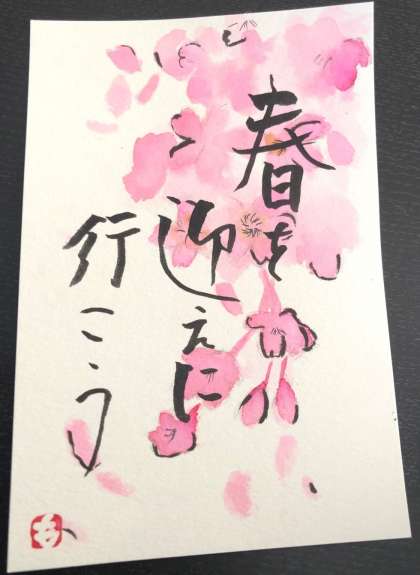 春を
迎えに
行こう